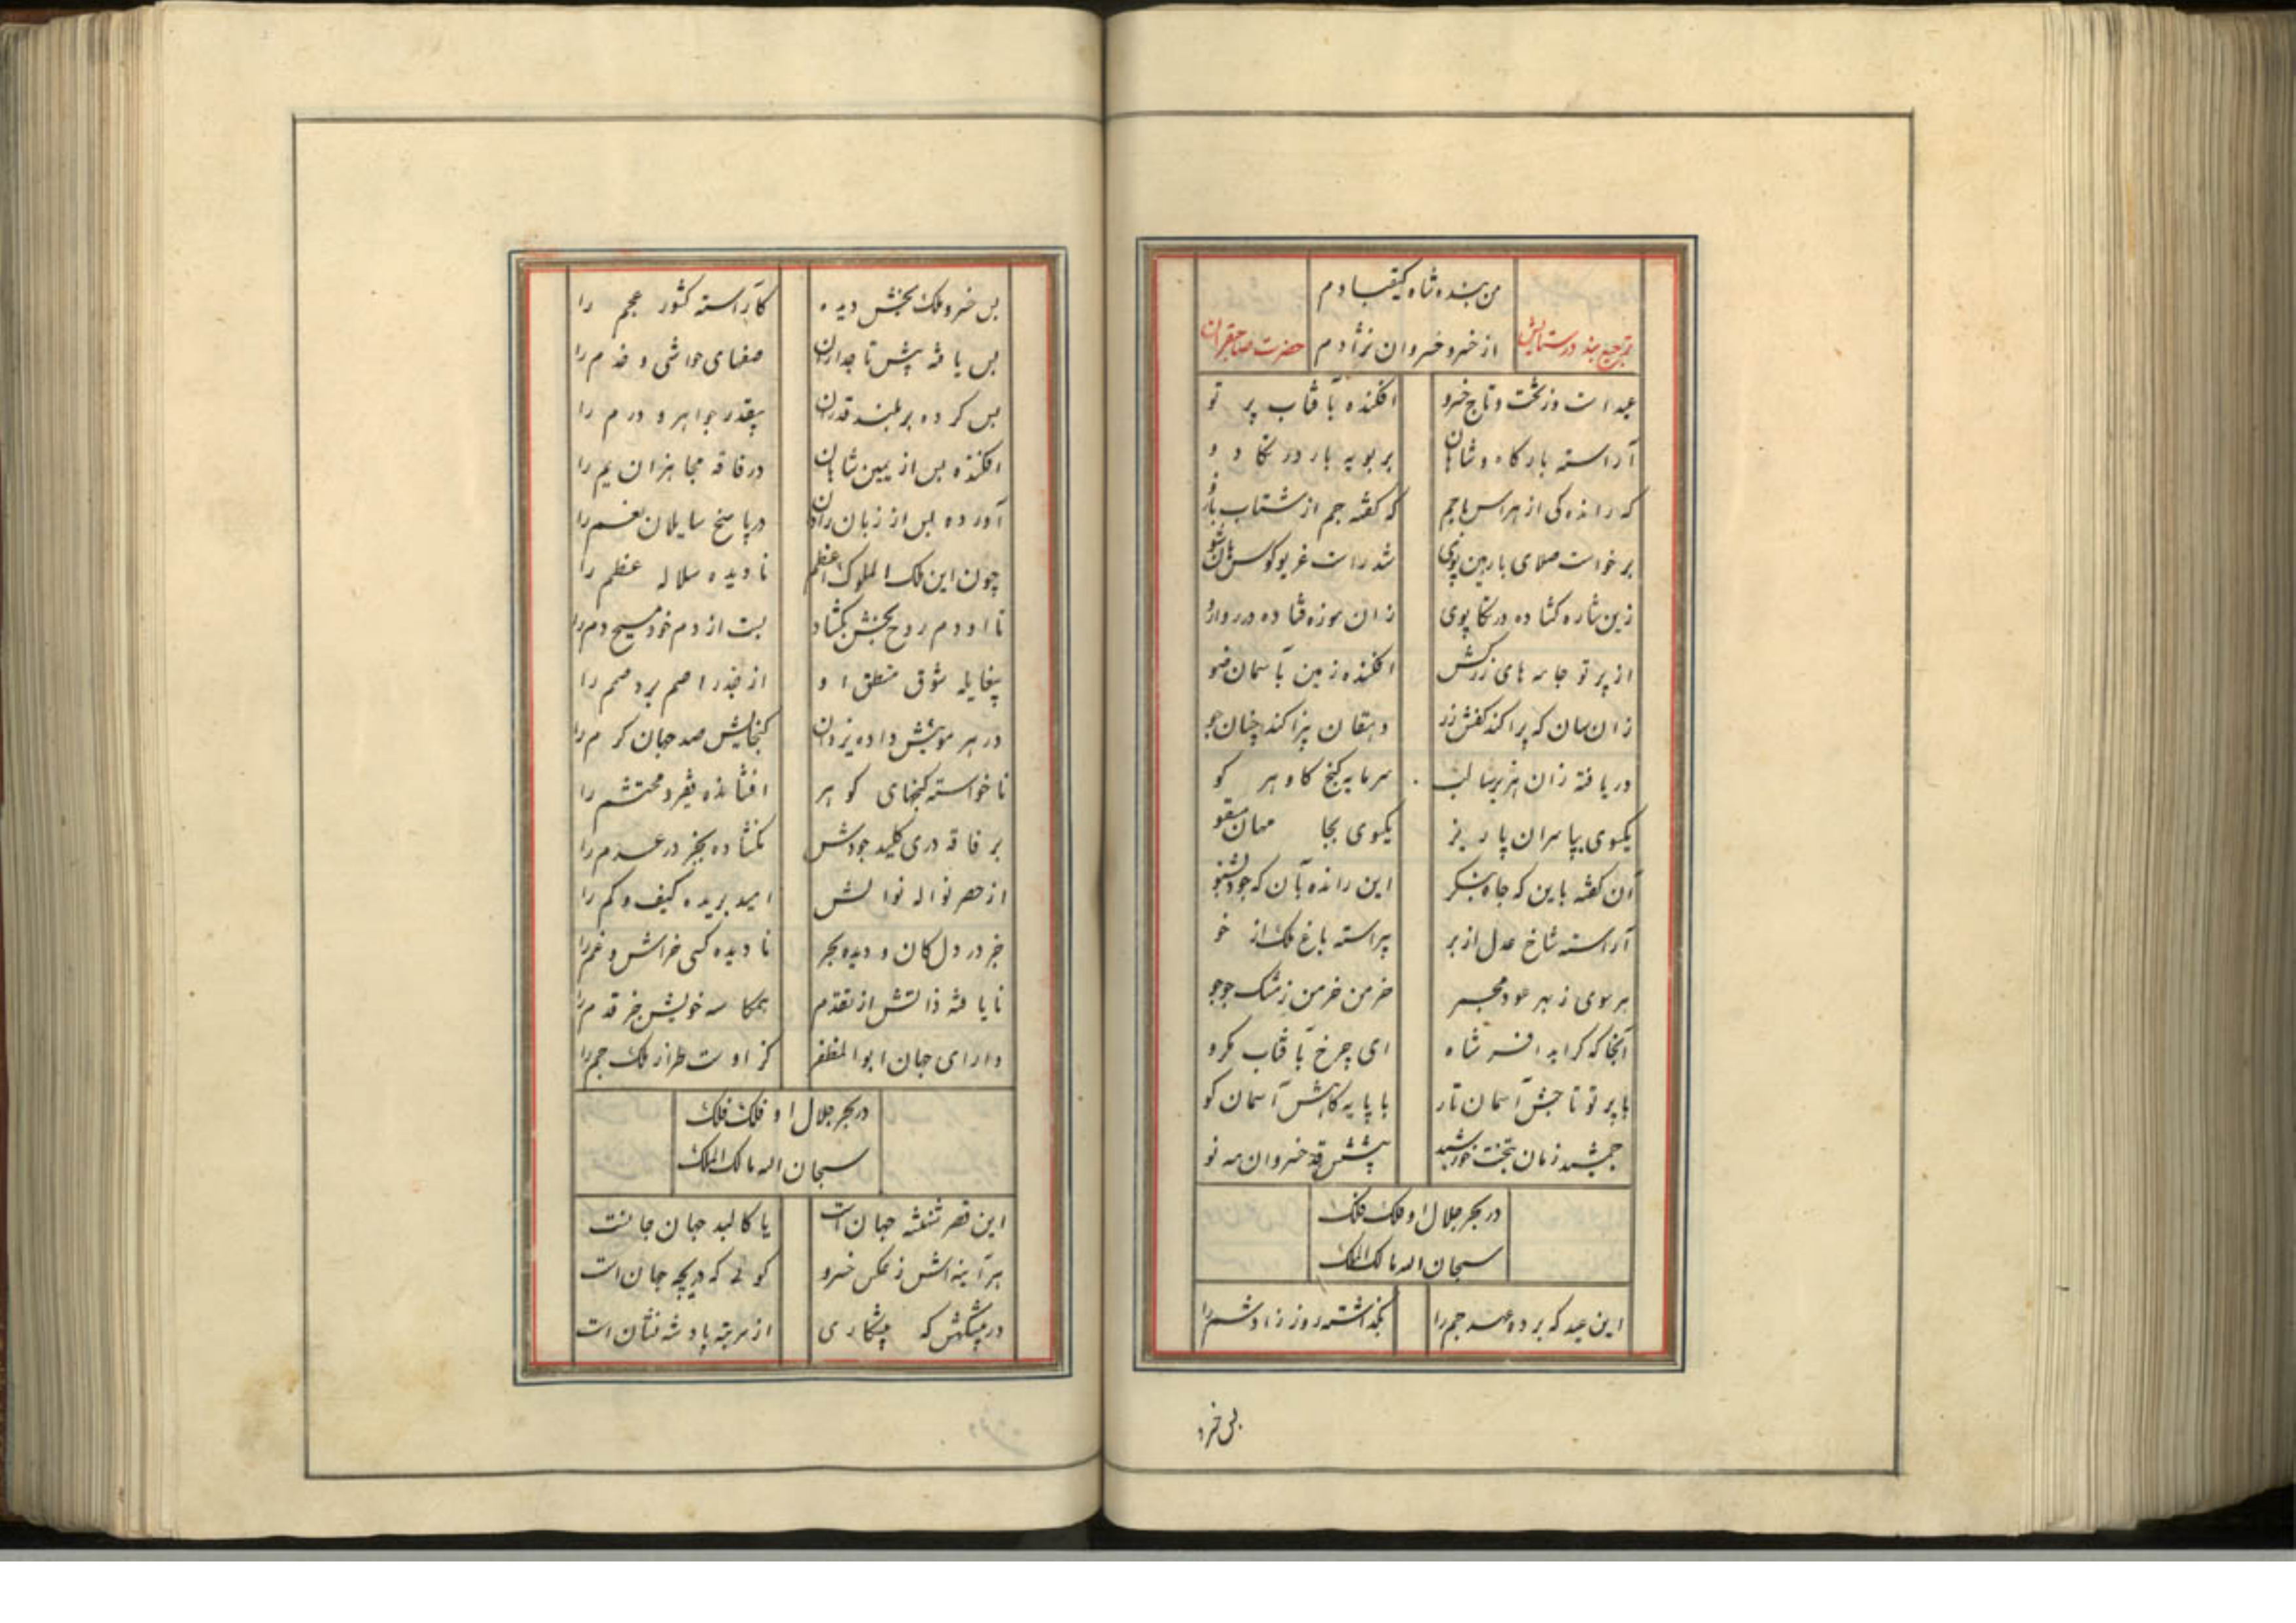 من بنده شاه کیقبادم
ترجیع بند در ستایش از خسرو خسروان نژادم حضرت صاحبقران
عید است وز تخت و تاج خسرو افکنده بآفتاب پرتو
آراسته بارگاه و شاهان بر بویه بار در تکادو
که رانده کی از هراس با جم که گفته جم از شتاب با
برخواست صلای بار هین شد راست غریو کوس هان
زین شاره کشاده در تکاپوی زان موزه فتاده در روارو
از پرتو جامه های زرکش افکنده زمین بآسمان ضو
زان سان که پراکند کفش زر دهقان نپراکند چنان جو
دریافته زان هژبرسا لب سرمایه گنج کاو هر کو
یکسوی بپا سران پا ریز یکسوی بجا مهان
آن گفته باین که جاه بنگر این رانده بآن که جود بشنو
آراسته شاخ عدل از بر پیراسته باغ ملک از خو
بر سوی ز بهر عود مجمر خرمن خرمن ز مشک جوجو
آنجا که گراید افسر شاه ای چرخ بآفتاب مگرو
با پرتو تاجش آسمان تار با پایه گاهش آسمان کو
جمشید زمان بتخت خورشید پیشش قد خسروان مه نو
در بحر جلال او فلک فلک
سبحان اله مالک الملک
این عید که برده عهد جم را بگذاشته روز زادشم را
بس خسرو
بس خسرو ملک بخش دیده کآراسته کشور عجم را
بس یافته پیش تاجداران صفهای حواشی و خدم را
بس کرده بر بلند قدران بیقدر جواهر و درم را
افکنده بس از یمین شاهان در فاقه مجاهزان یم را
آورده بس از زبان رادان در پاسخ سایلان نعم را
چون این ملک الملوک اعظم نادیده سلاله عظم را
تا او دم روح بخش بگشاد بست از دم خود مسیح دم را
بیغایله شوق منطق او از جذر اصم برد صمم را
در هر مویش داده یزدان گنجایش صد جهان کرم را
ناخواسته گنجهای گوهر افشانده فقیر و محتشم را
بر فاقه دری کلید جودش نگشاده بجز در عدم را
از حصر نواله نوالش امید بریده کیف و کم را
جز در دل کان و دیده بحر نادیده کسی خراش و نم را
نایافته ذاتش از تقدم همکاسه خویش جز قدم را
دارای جهان ابوالمظفر کز اوست طراز ملک جم را
در بحر جلال او فلک فلک
سبحان اله مالک الملک
این قصر شهنشه جهان است یا کالبد جهان جانست
هر آینه اش ز عکس خسرو گوئی که دریچه جان است
در پیشگهش که پیشکاری از مرتبه پادشه نشان است